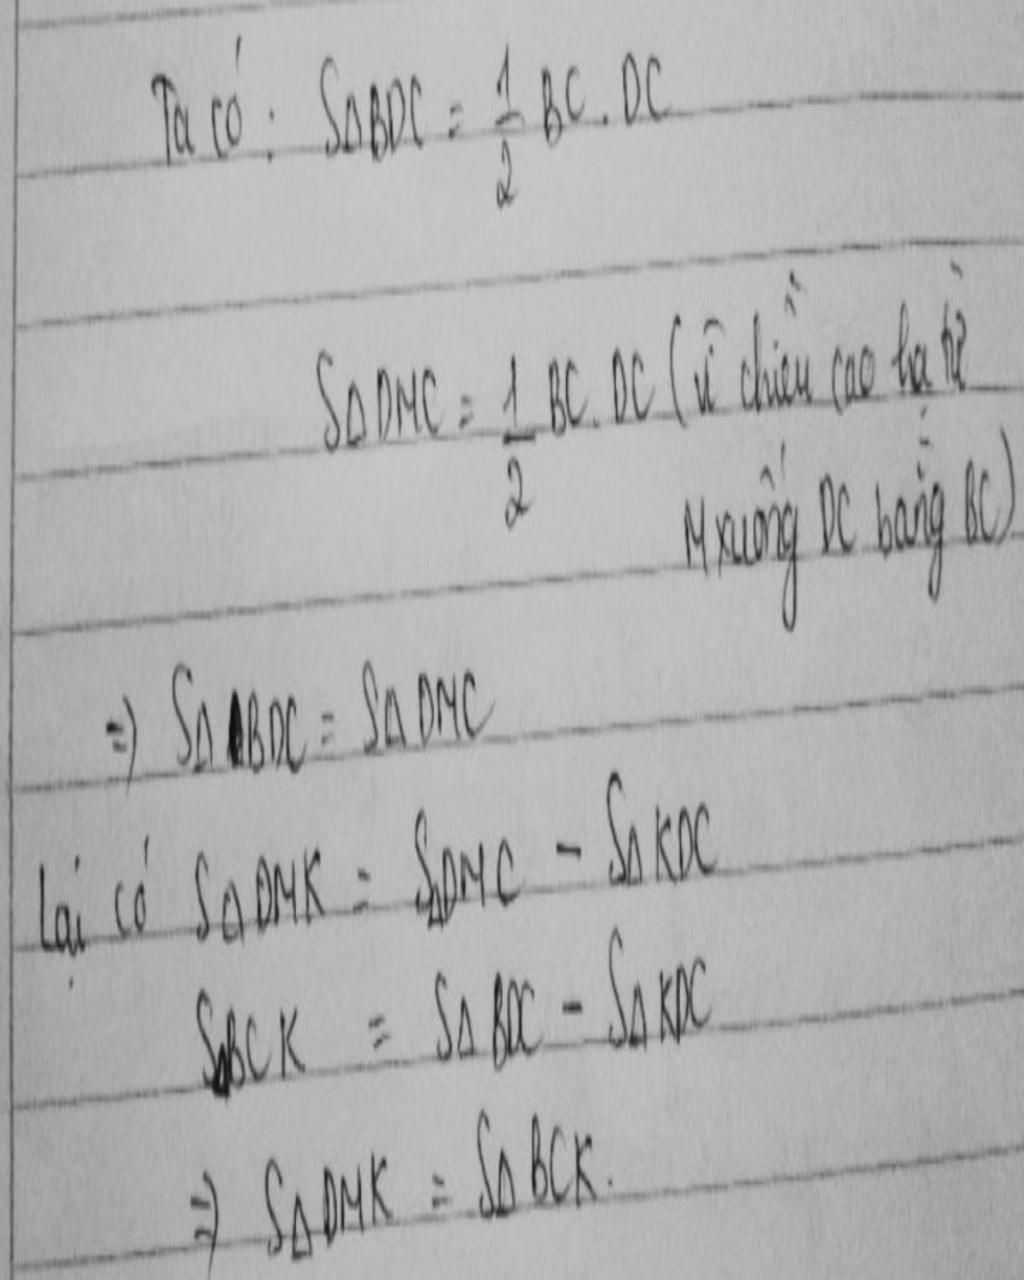 Ta có: SΔBDC = 1/2 BC. DC
SΔDMC = 1/2 BC. DC (vì chiều cao hạ từ
M xuống DC bằng BC)
=> SΔBDC = SΔDMC
Lại có SΔDMK = SΔDMC - SΔKDC
SΔBCK = SΔBDC - SΔKDC
=> SΔDMK = SΔBCK.